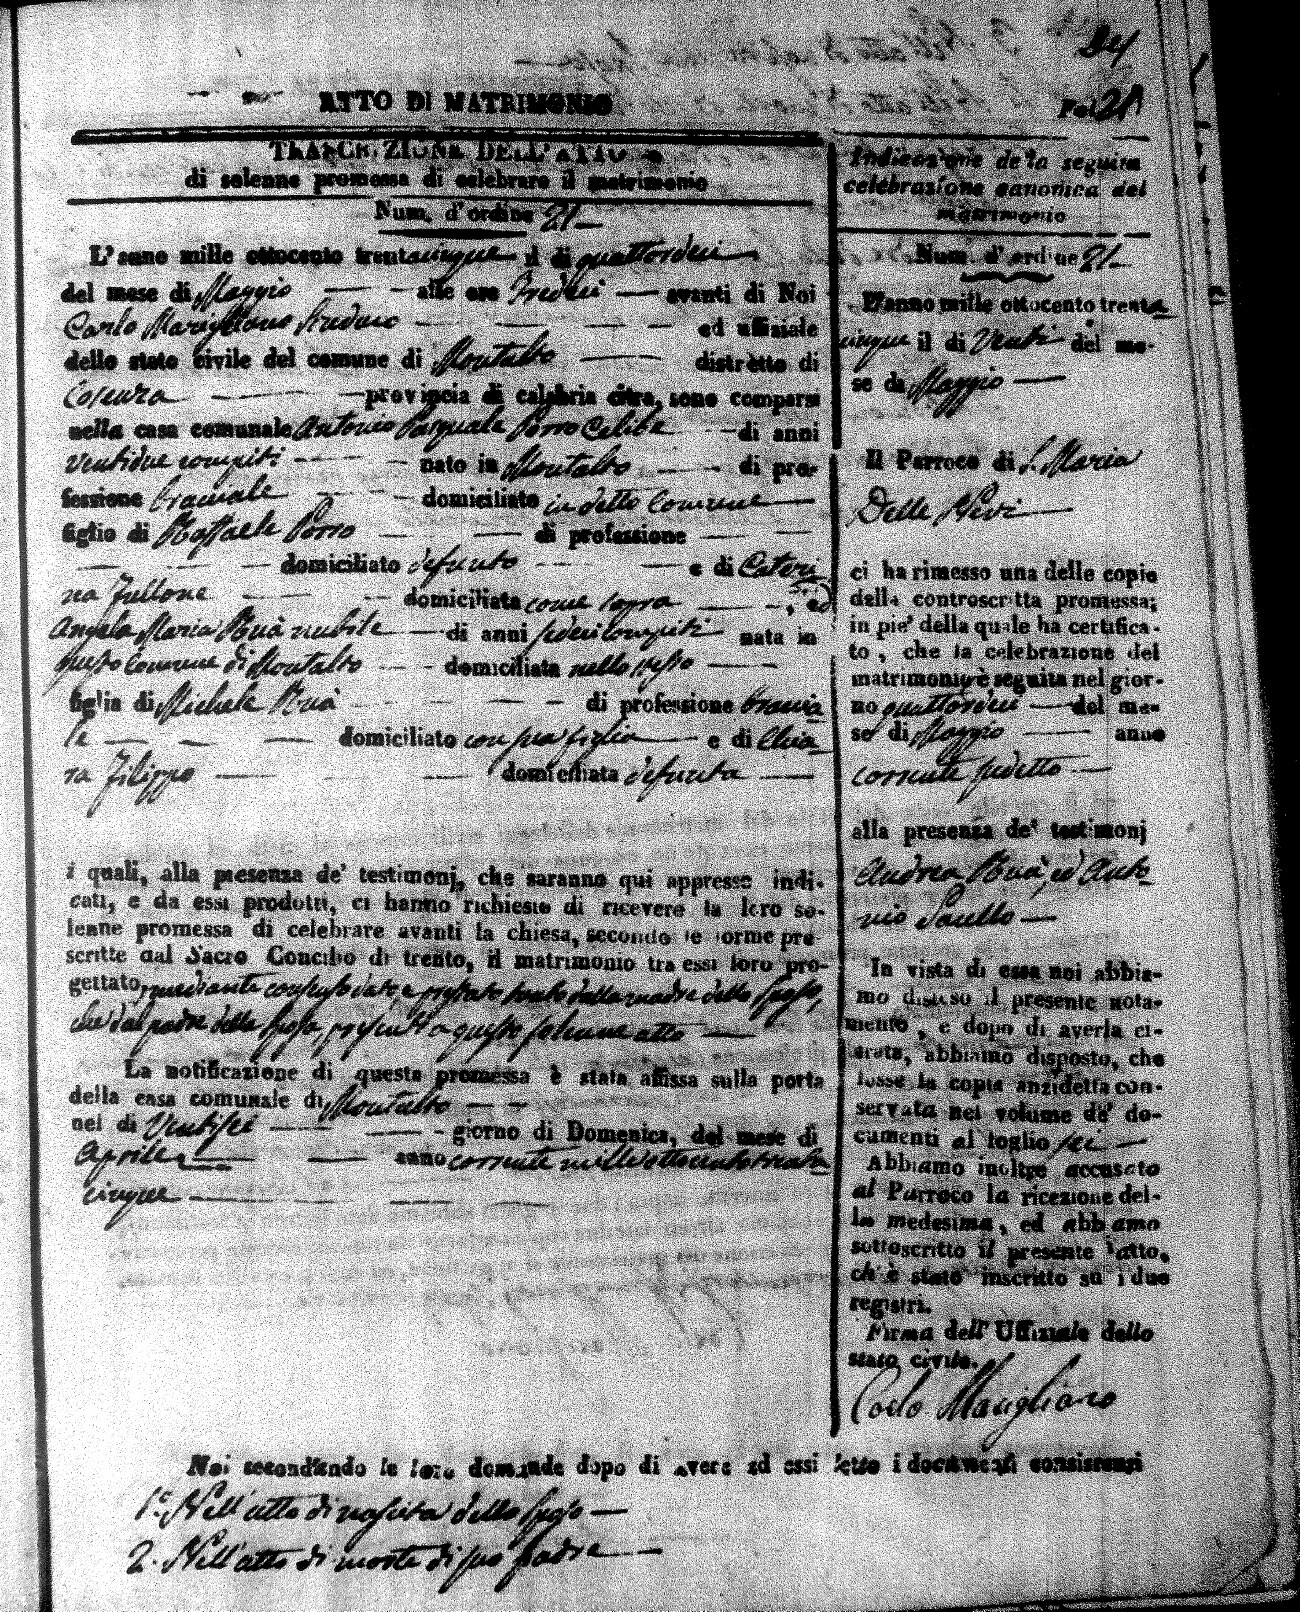 24
ATTO DI MATRIMONIO
Fol. 21
TRASCRIZIONE DELL'ATTO
di solenne promessa di celebrare il matrimonio
Num. d'ordine 21
L'anno mille ottocento trentacinque il dì quattordici
del mese di Maggio alle ore Tredici avanti di Noi
Carlo Marigliano Sindaco ed uffiziale
dello stato civile del comune di Montalto distretto di
Cosenza provincia di calabria citra, sono comparsi
nella casa comunale Antonio Pasquale Porro Celibe di anni
ventidue compiti nato in Montalto di pro-
fessione bracciale domiciliato in detto Comune
figlio di Raffaele Porro di professione
domiciliato defunto e di Cateri
na Fullone domiciliata come sopra, ed
Angela Maria Ruà nubile di anni sedici compiti nata in
questo Comune di Montalto domiciliata nello stesso
figlia di Michele Ruà di professione braccia
le domiciliato con sua figlia e di Chia
ra Filippo domiciliata defunta
i quali, alla presenza de' testimonj, che saranno qui appresso indi-
cati, e da essi prodotti, ci hanno richiesto di ricevere la loro so-
lenne promessa di celebrare avanti la chiesa, secondo le forme pre-
scritte dal Sacro Concilio di trento, il matrimonio tra essi loro pro-
gettato, mediante consenso dato, e prestato tanto dalla madre dello Sposo,
che dal padre della Sposa, presenti a questo solenne atto
La notificazione di questa promessa è stata affissa sulla porta
della casa comunale di Montalto
nel dì Ventisei giorno di Domenica, del mese di
Aprile anno corrente mille ottocento trenta
cinque
Indicazione della seguita
celebrazione canonica del
matrimonio
Num. d'ordine 21
L'anno mille ottocento trenta
cinque il dì Venti del me-
se di Maggio
Il Parroco di S. Maria
Delle Nevi
ci ha rimesso una delle copie
della controscritta promessa;
in pie' della quale ha certifica-
to, che la celebrazione del
matrimonio è seguita nel gior-
no quattordici del me-
se di Maggio anno
corrente sudetto
alla presenza de' testimonj
Andrea Ruà, ed Anto
nio Sarello
In vista di essa noi abbia-
mo disteso il presente nota-
mento, e dopo di averla ci-
frata, abbiamo disposto, che
fosse la copia anzidetta con-
servata nel volume de' do-
cumenti al foglio sei
Abbiamo inoltre accusato
al Parroco la ricezione del-
la medesima, ed abbiamo
sottoscritto il presente atto,
ch' è stato inscritto su i due
registri.
Firma dell' Uffiziale dello
stato civile.
Carlo Marigliano
Noi secondando le loro domande dopo di avere ad essi letto i documenti consistenti
1.º Nell'atto di nascita dello sposo
2. Nell'atto di morte di suo padre